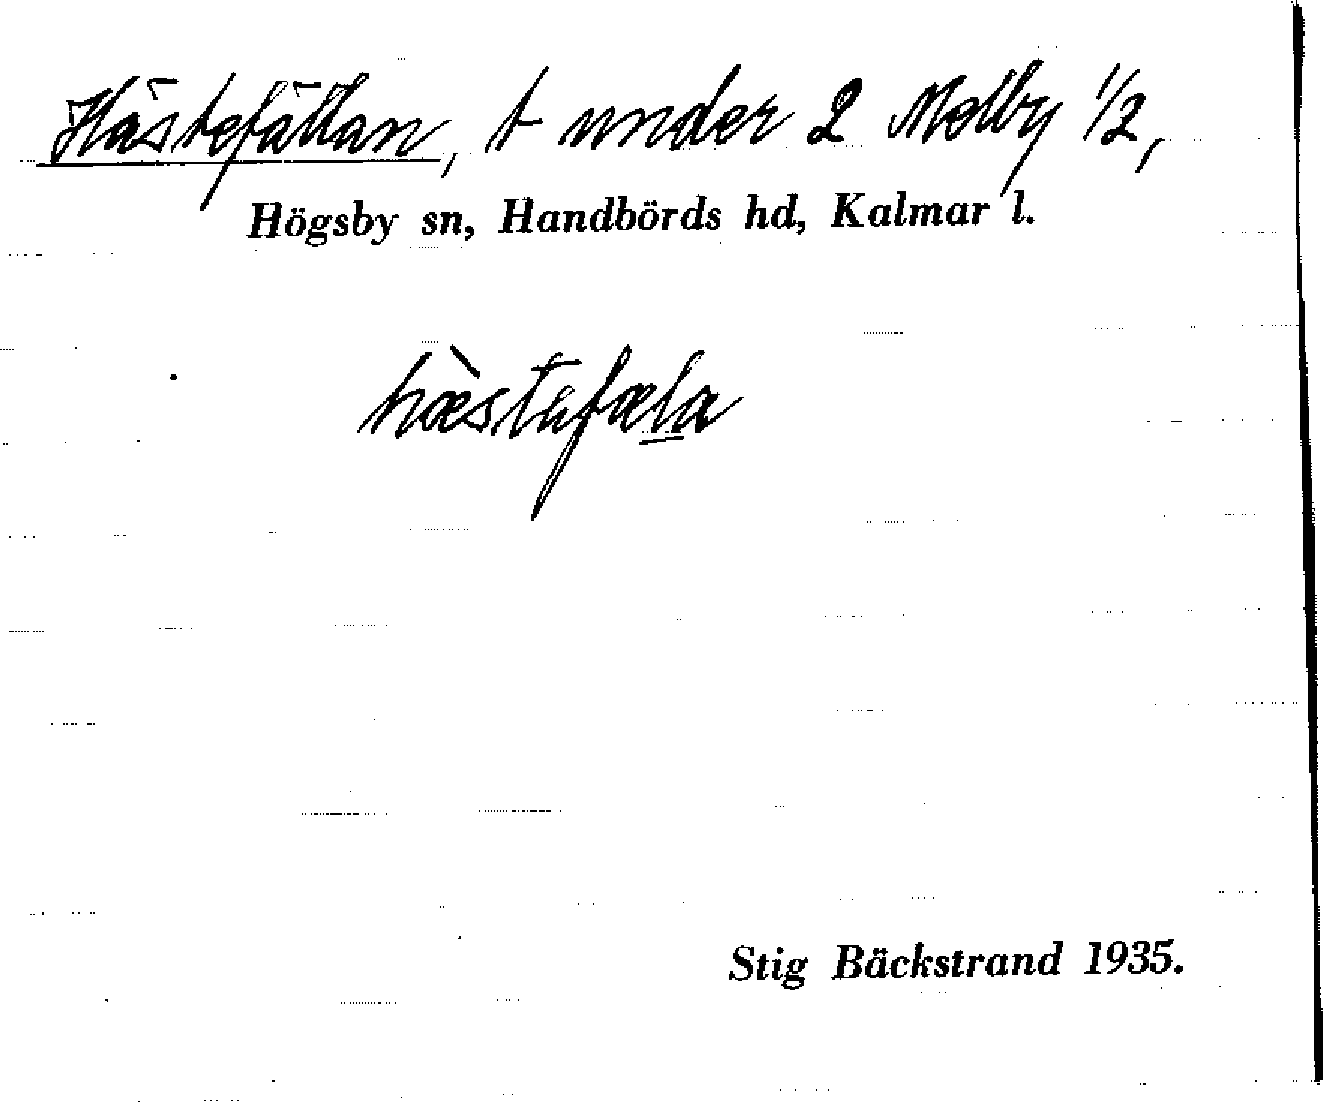 Hästefällan, t under 2 Melby 1/2,
Högsby sn, Handbörds hd, Kalmar l.
hæ̀stəfæla
Stig Bäckstrand 1935.